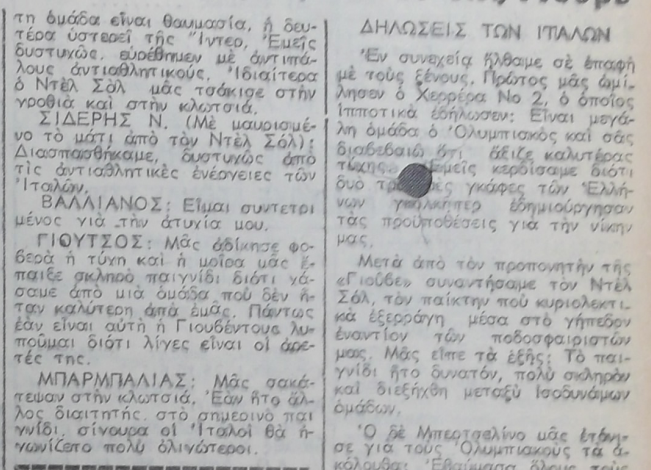 τη ὁμάδα εἶναι θαυμασία, ἡ δευ-
τέρα ὑστερεῖ τῆς Ἴντερ. Ἐμεῖς
δυστυχῶς, εὑρέθημεν μὲ ἀντιπά-
λους ἀντιαθλητικούς. Ἰδιαίτερα
ὁ Ντὲλ Σὸλ μᾶς τσάκισε στὴν
γροθιὰ καὶ στὴν κλωτσιά.
ΣΙΔΕΡΗΣ Ν. (Μὲ μαυρισμέ-
νο τὸ μάτι ἀπὸ τὸν Ντὲλ Σόλ):
Διασπασθήκαμε, δυστυχῶς ἀπὸ
τὶς ἀντιαθλητικὲς ἐνέργειες τῶν
Ἰταλῶν.
ΒΑΛΛΙΑΝΟΣ: Εἶμαι συντετρι
μένος γιὰ τὴν ἀτυχία μου.
ΓΙΟΥΤΣΟΣ: Μᾶς ἀδίκησε φο-
βερὰ ἡ τύχη καὶ ἡ μοῖρα μᾶς ἔ-
παιξε σκληρὸ παιγνίδι διότι χά-
σαμε ἀπὸ μιὰ ὁμάδα ποὺ δὲν ἦ-
ταν καλύτερη ἀπὸ ἐμᾶς. Πάντως
ἐὰν εἶναι αὐτὴ ἡ Γιουβέντους λυ-
ποῦμαι διότι λίγες εἶναι οἱ ἀρε-
τές της.
ΜΠΑΡΜΠΑΛΙΑΣ: Μᾶς σακά-
τεψαν στὴν κλωτσιά. Ἐὰν ἦτο ἄλ-
λος διαιτητής, στὸ σημερινὸ παι
γνίδι, σίγουρα οἱ Ἰταλοὶ θὰ ἠ-
γωνίζετο πολὺ ὀλιγώτεροι.
ΔΗΛΩΣΕΙΣ ΤΩΝ ΙΤΑΛΩΝ
Ἐν συνεχείᾳ ἤλθαμε σὲ ἐπαφὴ
μὲ τοὺς ξένους. Πρῶτος μᾶς ὡμί-
λησεν ὁ Χερρέρα Νο 2, ὁ ὁποῖος
Ἱπποτικὰ ἐδήλωσεν: Εἶναι μεγά-
λη ὁμάδα ὁ Ὀλυμπιακὸς καὶ σᾶς
διαβεβαιῶ ὅτι ἄξιζε καλυτέρας
τύχης. Ἐμεῖς κερδίσαμε διότι
δυὸ γκάφες τῶν Ἑλλή-
νων ἐδημιούργησαν
τὰς προϋποθέσεις γιὰ τὴν νίκην
μας.
Μετὰ ἀπὸ τὸν προπονητὴν τῆς
«Γιοῦβε» συναντήσαμε τὸν Ντὲλ
Σόλ, τὸν παίκτην ποὺ κυριολεκτι-
κὰ ἐξερράγη μέσα στὸ γήπεδον
ἐναντίον τῶν ποδοσφαιριστῶν
μας. Μᾶς εἶπε τὰ ἑξῆς: Τὸ παι-
γνίδι ἦτο δυνατόν, πολὺ σκληρὸν
καὶ διεξήχθη μεταξὺ Ἰσοδυνάμων
ὁμάδων.
Ὁ δὲ Μπερτσελίνο μᾶς ἐτόνι-
σε γιὰ τοὺς Ὀλυμπιακοὺς τὰ ἀ-
κόλουθα: